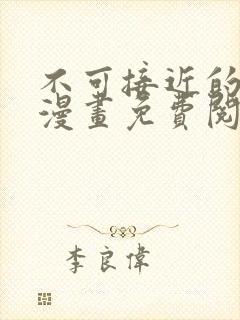 不可接近的
漫畫免費閱
李良偉